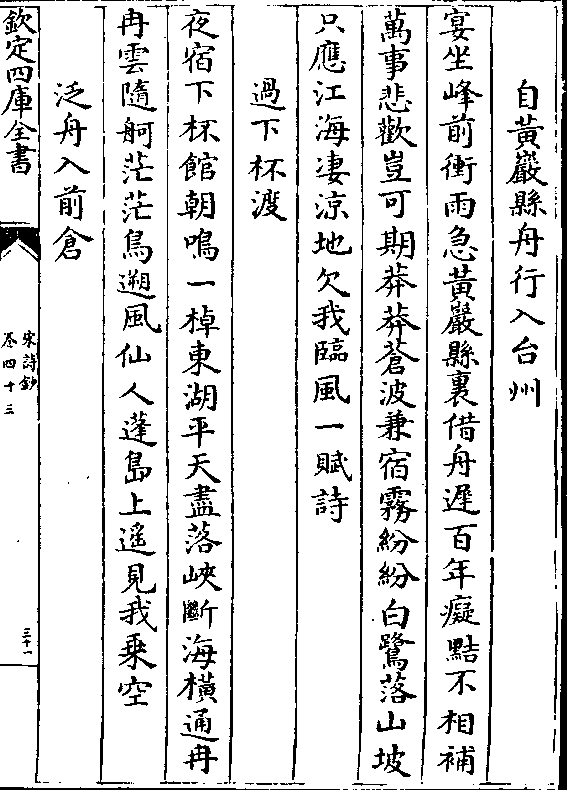 自黃巖縣舟行入台州
宴坐峰前衝雨急黃巖縣裏借舟遲百年癡黠不相補
萬事悲歡豈可期莽莽蒼波兼宿霧紛紛白鷺落山坡
只應江海淒涼地欠我臨風一賦詩
過下杯渡
夜宿下杯館朝鳴一棹東湖平天盡落峽斷海橫通冉
冉雲隨舸茫茫鳥遡風仙人蓬島上遥見我乗空
泛舟入前倉
欽定四庫全書
宋詩鈔
卷四十三
三十一